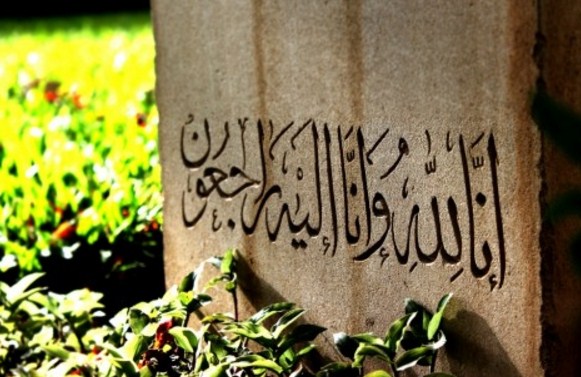 إنَّا لِلّٰهِ وَإنَّا إليْهِ راجعون